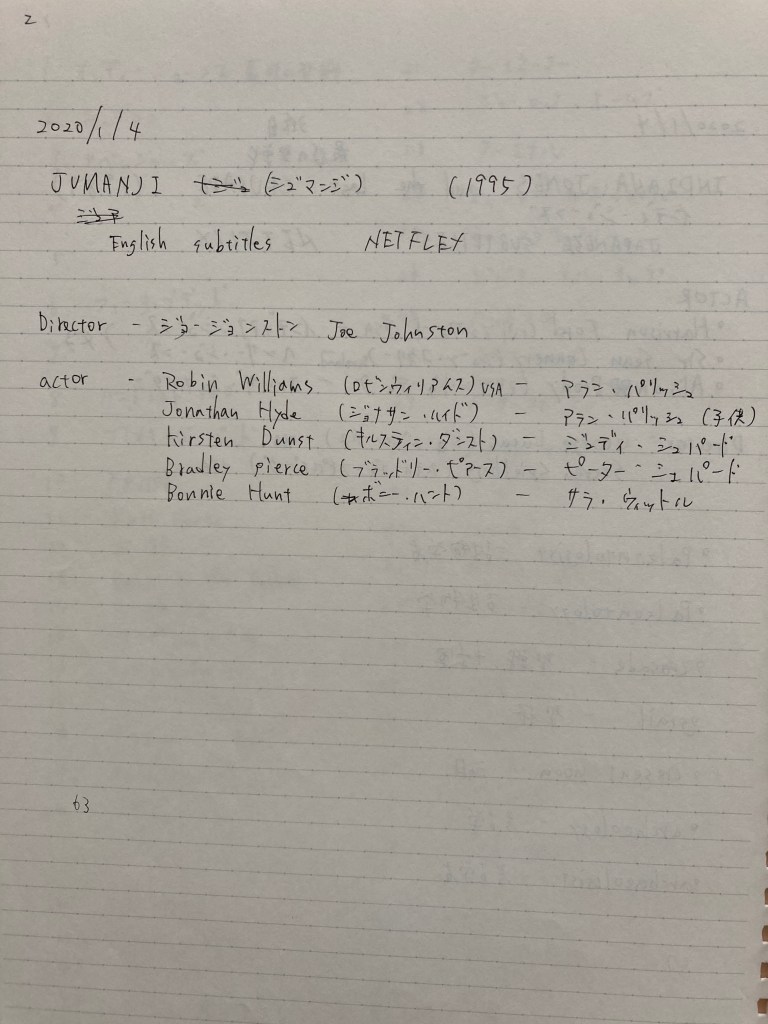 2
2020/1/4
JUMANJI (ジュマンジ) (1995)
English subtitles NETFLEX
Director - ジョー・ジョンストン Joe Johnston
actor - Robin Williams (ロビン・ウィリアムス) USA - アラン・パリッシュ
Jonathan Hyde (ジョナサン・ハイド) - アラン・パリッシュ (子供)
Kirsten Dunst (キルスティン・ダンスト) - ジュディ・シェパード
Bradley Pierce (ブラッドリー・ピアース) - ピーター・シェパード
Bonnie Hunt (ボニー・ハント) - サラ・ウィットル
63